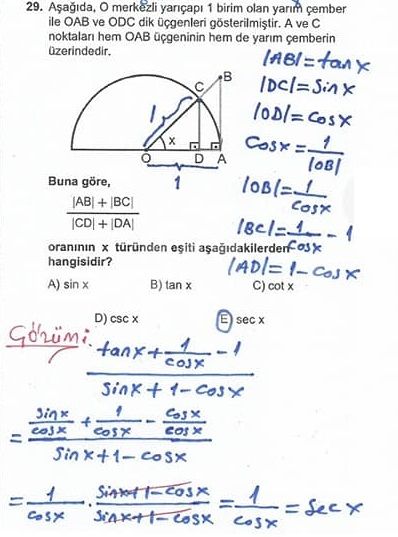 29. Aşağıda, O merkezli yarıçapı 1 birim olan yarım çember
ile OAB ve ODC dik üçgenleri gösterilmiştir. A ve C
noktaları hem OAB üçgeninin hem de yarım çemberin
üzerindedir.
|AB|=tanx
|DC|=Sinx
|OD|=Cosx
Cosx=1/|OB|
|OB|=1/Cosx
|BC|=1/Cosx - 1
|AD|=1-Cosx
B
C
1
x
O D A
1
Buna göre,
|AB| + |BC|
|CD| + |DA|
oranının x türünden eşiti aşağıdakilerden
hangisidir?
A) sin x B) tan x C) cot x
D) csc x E) sec x
Çözümü:
tanx + 1/cosx - 1
sinx + 1 - cosx
= sinx/cosx + 1/cosx - cosx/cosx
sinx + 1 - cosx
= 1/cosx . sinx+1-cosx/sinx+1-cosx = 1/cosx = Sec x